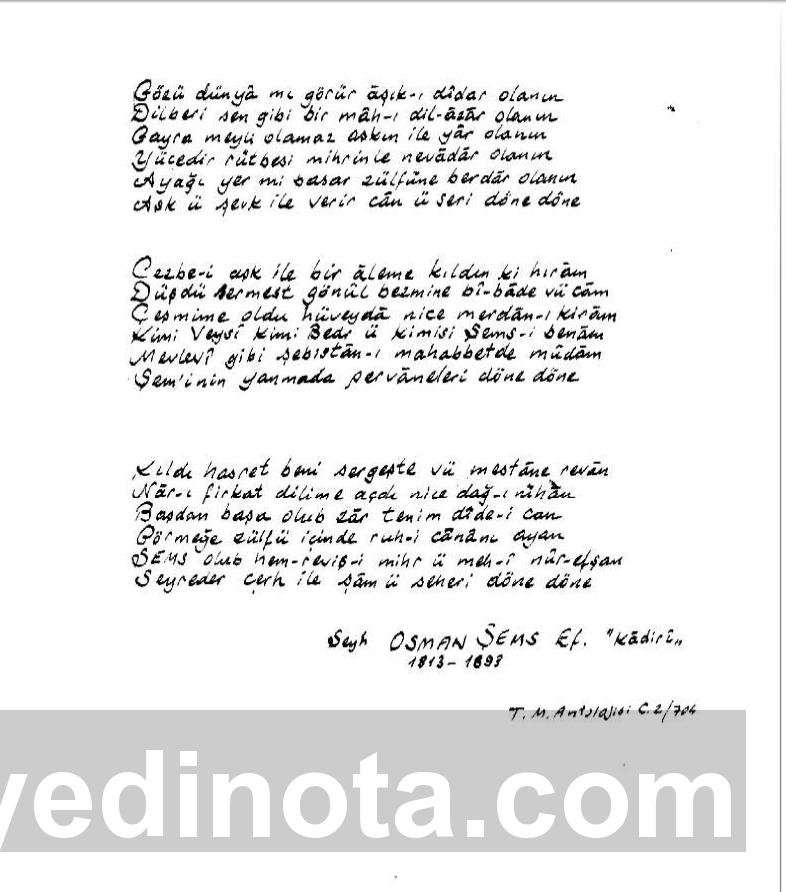 Gözü dünyâ mı görür âşık-ı dîdar olanın
Dilberi sen gibi bir mâh-ı dil-âzâr olanın
Gayra meyli olamaz aşkın ile yâr olanın
Yücedir rütbesi mihrinle nevâdâr olanın
Ayağı yer mi basar zülfüne berdâr olanın
Aşk ü şevk ile verir cân ü seri döne döne
Cezbe-i aşk ile bir âleme kıldın ki hırâm
Düşdü sermest gönül bezmine bî-bâde vü câm
Çeşmime oldu hüveydâ nice merdân-ı kirâm
Kimi Veysî kimi Bedr ü kimisi Şems-i benâm
Mevlevî gibi şebistân-ı mahabbetde müdâm
Şem'inin yanmada pervâneleri döne döne
Kıldı hasret beni sergeşte vü mestâne revân
Nâr-ı firkat dilime açdı nice dağ-ı nihân
Başdan başa olub zâr tenim dîde-i can
Görmeğe zülfü içinde ruh-i cânânı ayan
ŞEMS olub hem-reviş-i mihr ü meh-i nûr-efşan
Seyreder çerh ile şâm ü seheri döne döne
Şeyh OSMAN ŞEMS Ef. "Kâdirî"
1813-1893
T. M. Antolojisi C.2/704
yedinota.com